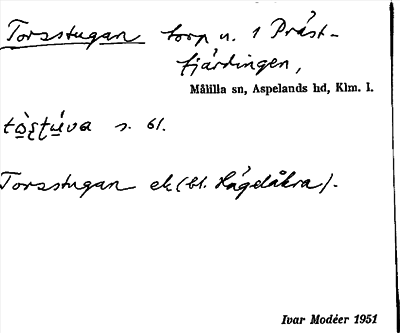 Torsstugan torp n. i Präst-
fjärdingen,
Målilla sn, Aspelands hd, Klm. l.
s. 61.
Torsstugan ek (bl. Hägdåkra).
Ivar Modéer 1951